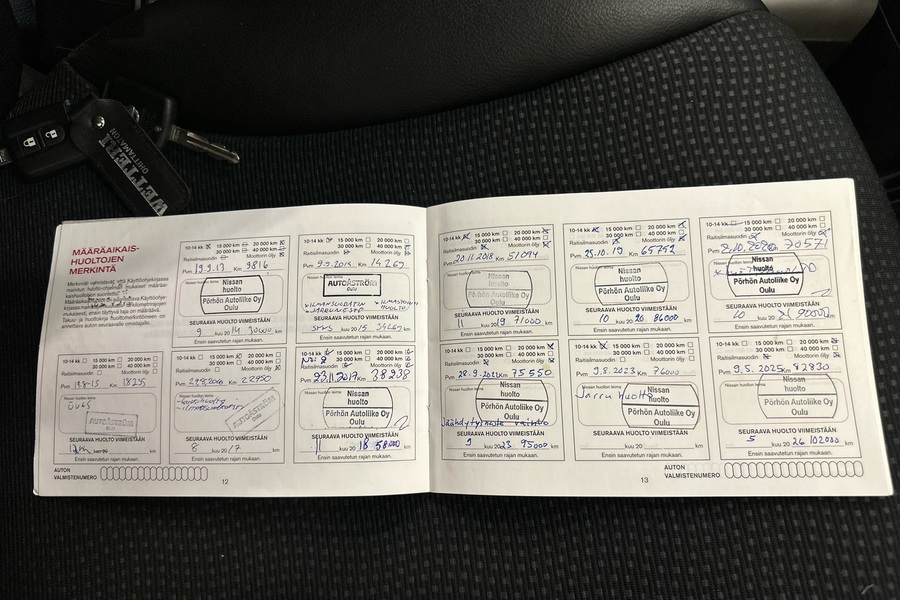 WETTERI
OHITTAMATON
MÄÄRÄAIKAIS-
HUOLTOJEN
MERKINTÄ
10-14 kk 15 000 km 20 000 km
30 000 km 40 000 km
Raitisilmasuodin Moottorin öljy
Pvm 19.9.13 Km 9816
Nissan huollon leima
Nissan
huolto
Pörhön Autoliike Oy
Oulu
SEURAAVA HUOLTO VIIMEISTÄÄN
9 kuu 20 14 30000 km
Ensin saavutetun rajan mukaan.
10-14 kk 15 000 km 20 000 km
30 000 km 40 000 km
Raitisilmasuodin Moottorin öljy
Pvm 9.9.2014 Km 14267
AUTOÅSTRÖM
OULU
SEURAAVA HUOLTO VIIMEISTÄÄN
SYYS kuu 20 15 34267 km
Ensin saavutetun rajan mukaan.
10-14 kk 15 000 km 20 000 km
30 000 km 40 000 km
Raitisilmasuodin Moottorin öljy
Pvm 18255
AUTOÅSTRÖM
OULU
SEURAAVA HUOLTO VIIMEISTÄÄN
12kk
Ensin saavutetun rajan mukaan.
10-14 kk 15 000 km 20 000 km
30 000 km 40 000 km
Raitisilmasuodin Moottorin öljy
Pvm 29.8.2016 Km 22950
AUTOÅSTRÖM
OULU
SEURAAVA HUOLTO VIIMEISTÄÄN
8 kuu 20 17 km
Ensin saavutetun rajan mukaan.
10-14 kk 15 000 km 20 000 km
30 000 km 40 000 km
Raitisilmasuodin Moottorin öljy
Pvm 23.11.2017 Km 38238
Nissan
huolto
Pörhön Autoliike Oy
Oulu
SEURAAVA HUOLTO VIIMEISTÄÄN
11 kuu 20 18 58000 km
Ensin saavutetun rajan mukaan.
AUTON
VALMISTENUMERO
12
10-14 kk 15 000 km 20 000 km
30 000 km 40 000 km
Raitisilmasuodin Moottorin öljy
Pvm 20.11.2018 Km 51094
Nissan
huolto
Pörhön Autoliike Oy
Oulu
SEURAAVA HUOLTO VIIMEISTÄÄN
11 kuu 20 19 71000 km
Ensin saavutetun rajan mukaan.
10-14 kk 15 000 km 20 000 km
30 000 km 40 000 km
Raitisilmasuodin Moottorin öljy
Pvm 25.10.19 Km 65792
Nissan
huolto
Pörhön Autoliike Oy
Oulu
SEURAAVA HUOLTO VIIMEISTÄÄN
10 kuu 20 20 86000 km
Ensin saavutetun rajan mukaan.
10-14 kk 15 000 km 20 000 km
30 000 km 40 000 km
Raitisilmasuodin Moottorin öljy
Pvm 2.10.2020 Km 70571
Nissan
huolto
Pörhön Autoliike Oy
Oulu
SEURAAVA HUOLTO VIIMEISTÄÄN
10 kuu 20 21 90500 km
Ensin saavutetun rajan mukaan.
10-14 kk 15 000 km 20 000 km
30 000 km 40 000 km
Raitisilmasuodin Moottorin öljy
Pvm 28.9.2021 Km 75550
Nissan
huolto
Pörhön Autoliike Oy
Oulu
Jäähdytysneste vaihto
SEURAAVA HUOLTO VIIMEISTÄÄN
9 kuu 20 23 95000 km
Ensin saavutetun rajan mukaan.
10-14 kk 15 000 km 20 000 km
30 000 km 40 000 km
Raitisilmasuodin Moottorin öljy
Pvm 9.8.2023 Km 76000
Jarru huolto
Nissan
huolto
Pörhön Autoliike Oy
Oulu
SEURAAVA HUOLTO VIIMEISTÄÄN
kuu 20 km
Ensin saavutetun rajan mukaan.
10-14 kk 15 000 km 20 000 km
30 000 km 40 000 km
Raitisilmasuodin Moottorin öljy
Pvm 9.5.2025 Km 82830
Nissan
huolto
Pörhön Autoliike Oy
Oulu
SEURAAVA HUOLTO VIIMEISTÄÄN
5 kuu 20 26 102000 km
Ensin saavutetun rajan mukaan.
13
AUTON
VALMISTENUMERO